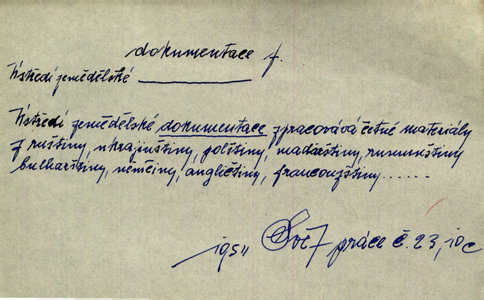 dokumentace f.
Ústředí zemědělské
Ústředí zemědělské dokumentace zpracovává četné materiály
z ruštiny, ukrajinštiny, polštiny, maďarštiny, rumunštiny
bulharštiny, němčiny, angličtiny, francouzštiny......
1951 práce č. 23, 10c